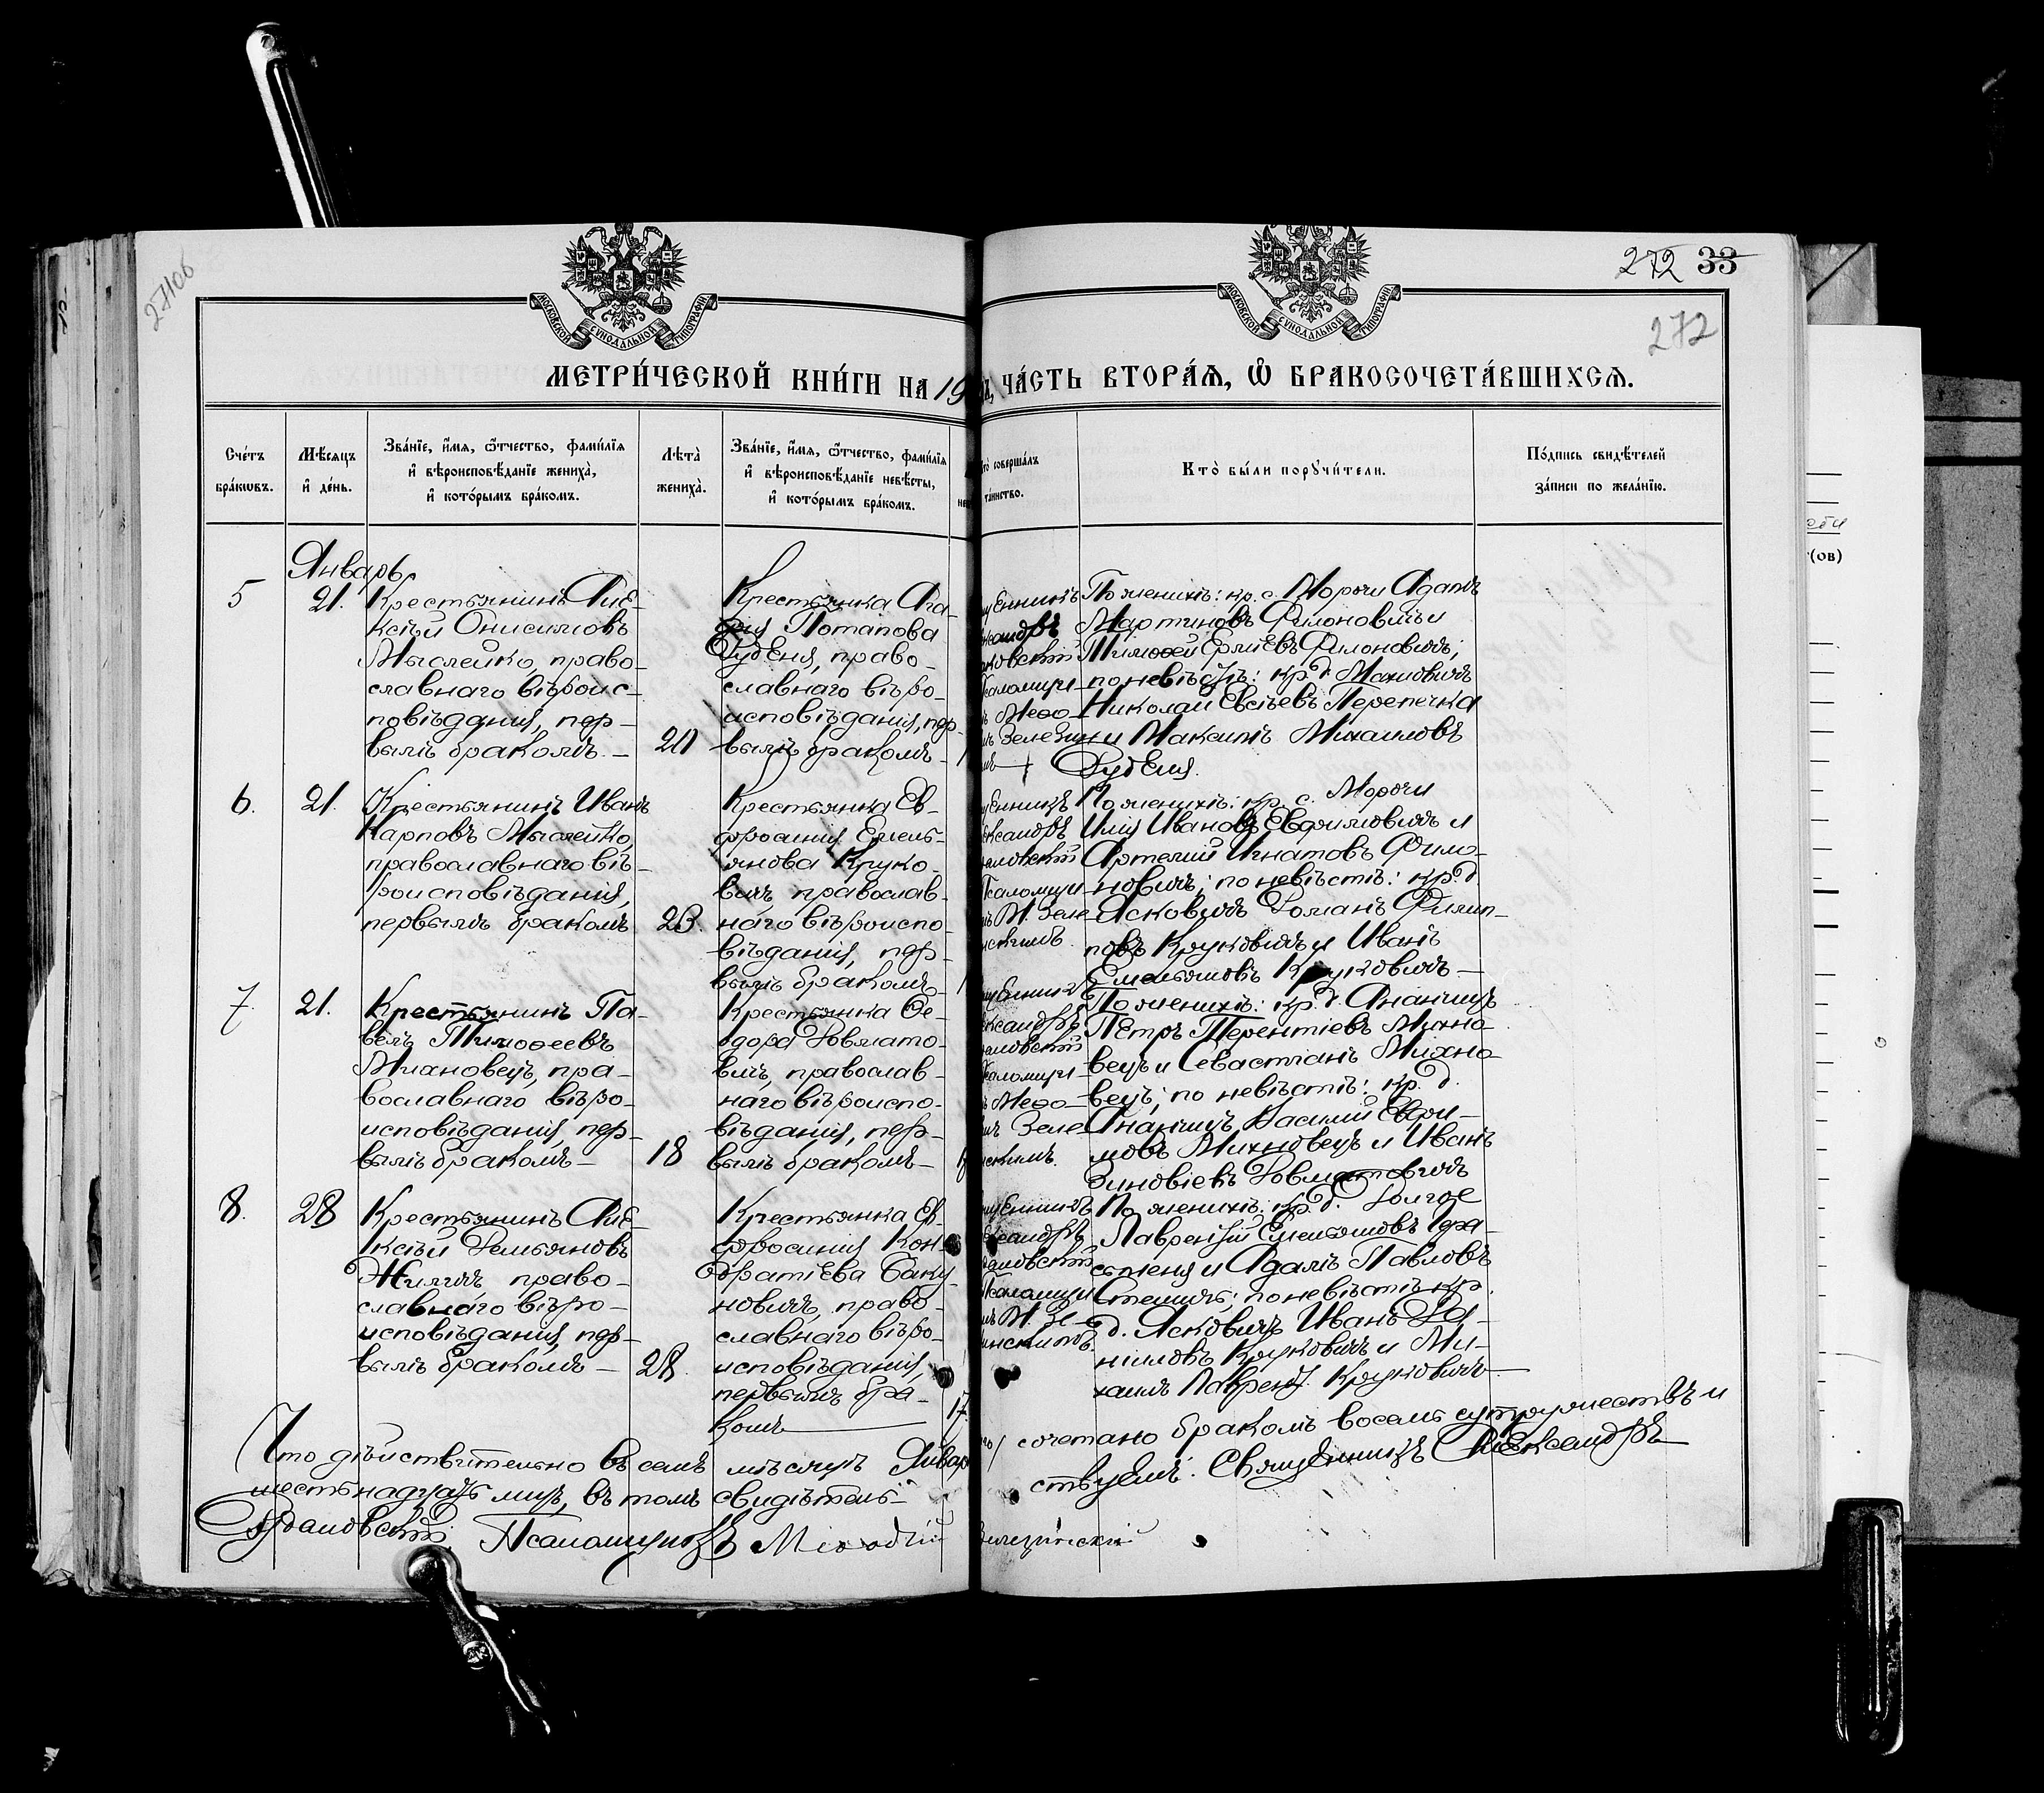 271об
МОСКОВСКОЙ СУНОДАЛЬНОЙ ТИПОГРАФІИ
МОСКОВСКОЙ СУНОДАЛЬНОЙ ТИПОГРАФІИ
272 33
272
МЕТРИ́ЧЕСКОЙ КНИ́ГИ НА 19
ЧА́СТЬ ВТОРА́Ѧ, Ѽ БРАКОСОЧЕТА́ВШИХСѦ.
Сче́тъ
бра́кѡвъ.
Мѣ́сѧцъ
и҆ де́нь.
Зва́нїе, и҆́мѧ, ѻ҆́тчество, фами́лїѧ
и҆ вѣроисповѣ́данїе жениха̀,
и҆ кото́рымъ бра́комъ.
Лѣ́та
жениха̀.
Зва́нїе, и҆́мѧ, ѻ҆́тчество, фами́лїѧ
и҆ вѣроисповѣ́данїе невѣ́сты,
и҆ кото́рымъ бра́комъ.
соверша́лъ
та́инство.
Кто̀ бы́ли порꙋчи́тели.
По́дпись свидѣ́телей
за́писи по жела́нїю.
Январь
5
21.
Крестьянинъ Але-
ксѣй Онисимовъ
Мыслейко, право-
славнаго вѣроис-
повѣданія, пер-
вымъ бракомъ.—
20
Крестьянка Ага-
фія Потапова
Рубеня, право-
славнаго вѣро-
исповѣданія, пер-
вымъ бракомъ—
По женихѣ: кр. с. Морочи Адамъ
Мартиновъ Филоновичъ и
Тимоѳей Ермѣевъ Филоновичъ;
по невѣстѣ: кр. д.
Николай Евсѣевъ Перепечка
и Максимъ Михаиловъ
Рубеня.
6.
21.
Крестьянинъ Иванъ
Карповъ Мыслейко,
православнаго вѣ-
роисповѣданія,
первымъ бракомъ
23.
Крестьянка Ев-
фросинія Емель-
янова Круко-
вичъ, православ-
наго вѣроиспо-
вѣданія, пер-
вымъ бракомъ—
По женихѣ: кр. с. Морочи
Илія Ивановъ Евфимовичъ и
Артемій Игнатовъ Фило-
новичъ; по невѣстѣ: кр. д.
Ясковичъ Романъ Филип-
повъ Круковичъ и Иванъ
Емельяновъ Круковичъ—
7
21.
Крестьянинъ Па-
велъ Тимоѳеевъ
Михновецъ, пра-
вославнаго вѣро-
исповѣданія, пер-
вымъ бракомъ—
18
Крестьянка Ѳе-
одора Довмато-
вичъ, православ-
наго вѣроиспо-
вѣданія, пер-
вымъ бракомъ—
По женихѣ: кр. д. Ананчицъ
Петръ Терентіевъ Михно-
вецъ и Севастіанъ Михно-
вецъ; по невѣстѣ: кр. д.
Ананчицъ Василій Евфи-
мовъ Михновецъ и Иванъ
Зиновіевъ Довматовичъ
8.
28
Крестьянинъ Але-
ксѣй Демьяновъ
Жиличъ право-
славнаго вѣро-
исповѣданія, пер-
вымъ бракомъ—
28.
Крестьянка Ев-
фросинія Кон-
дратіева Баку-
новичъ, право-
славнаго вѣро-
исповѣданія,
первымъ бра-
комъ
17.
По женихѣ: кр. д. Долгое
Лаврентій Емельяновъ Гра-
и Адамъ Павловъ
по невѣстѣ: кр.
д. Ясковичъ Иванъ Да-
ніиловъ Круковичъ и Ми-
хаилъ Лаврент. Круковичъ—
Что дѣйствительно въ семъ мѣсяцѣ Январ
сочетано бракомъ восемь супружествъ и
шестьнадцать лицъ, въ томъ свидѣтель-
ствуемъ: Священникъ Александръ
Псаломщикъ Меѳодій
Зелезинскій